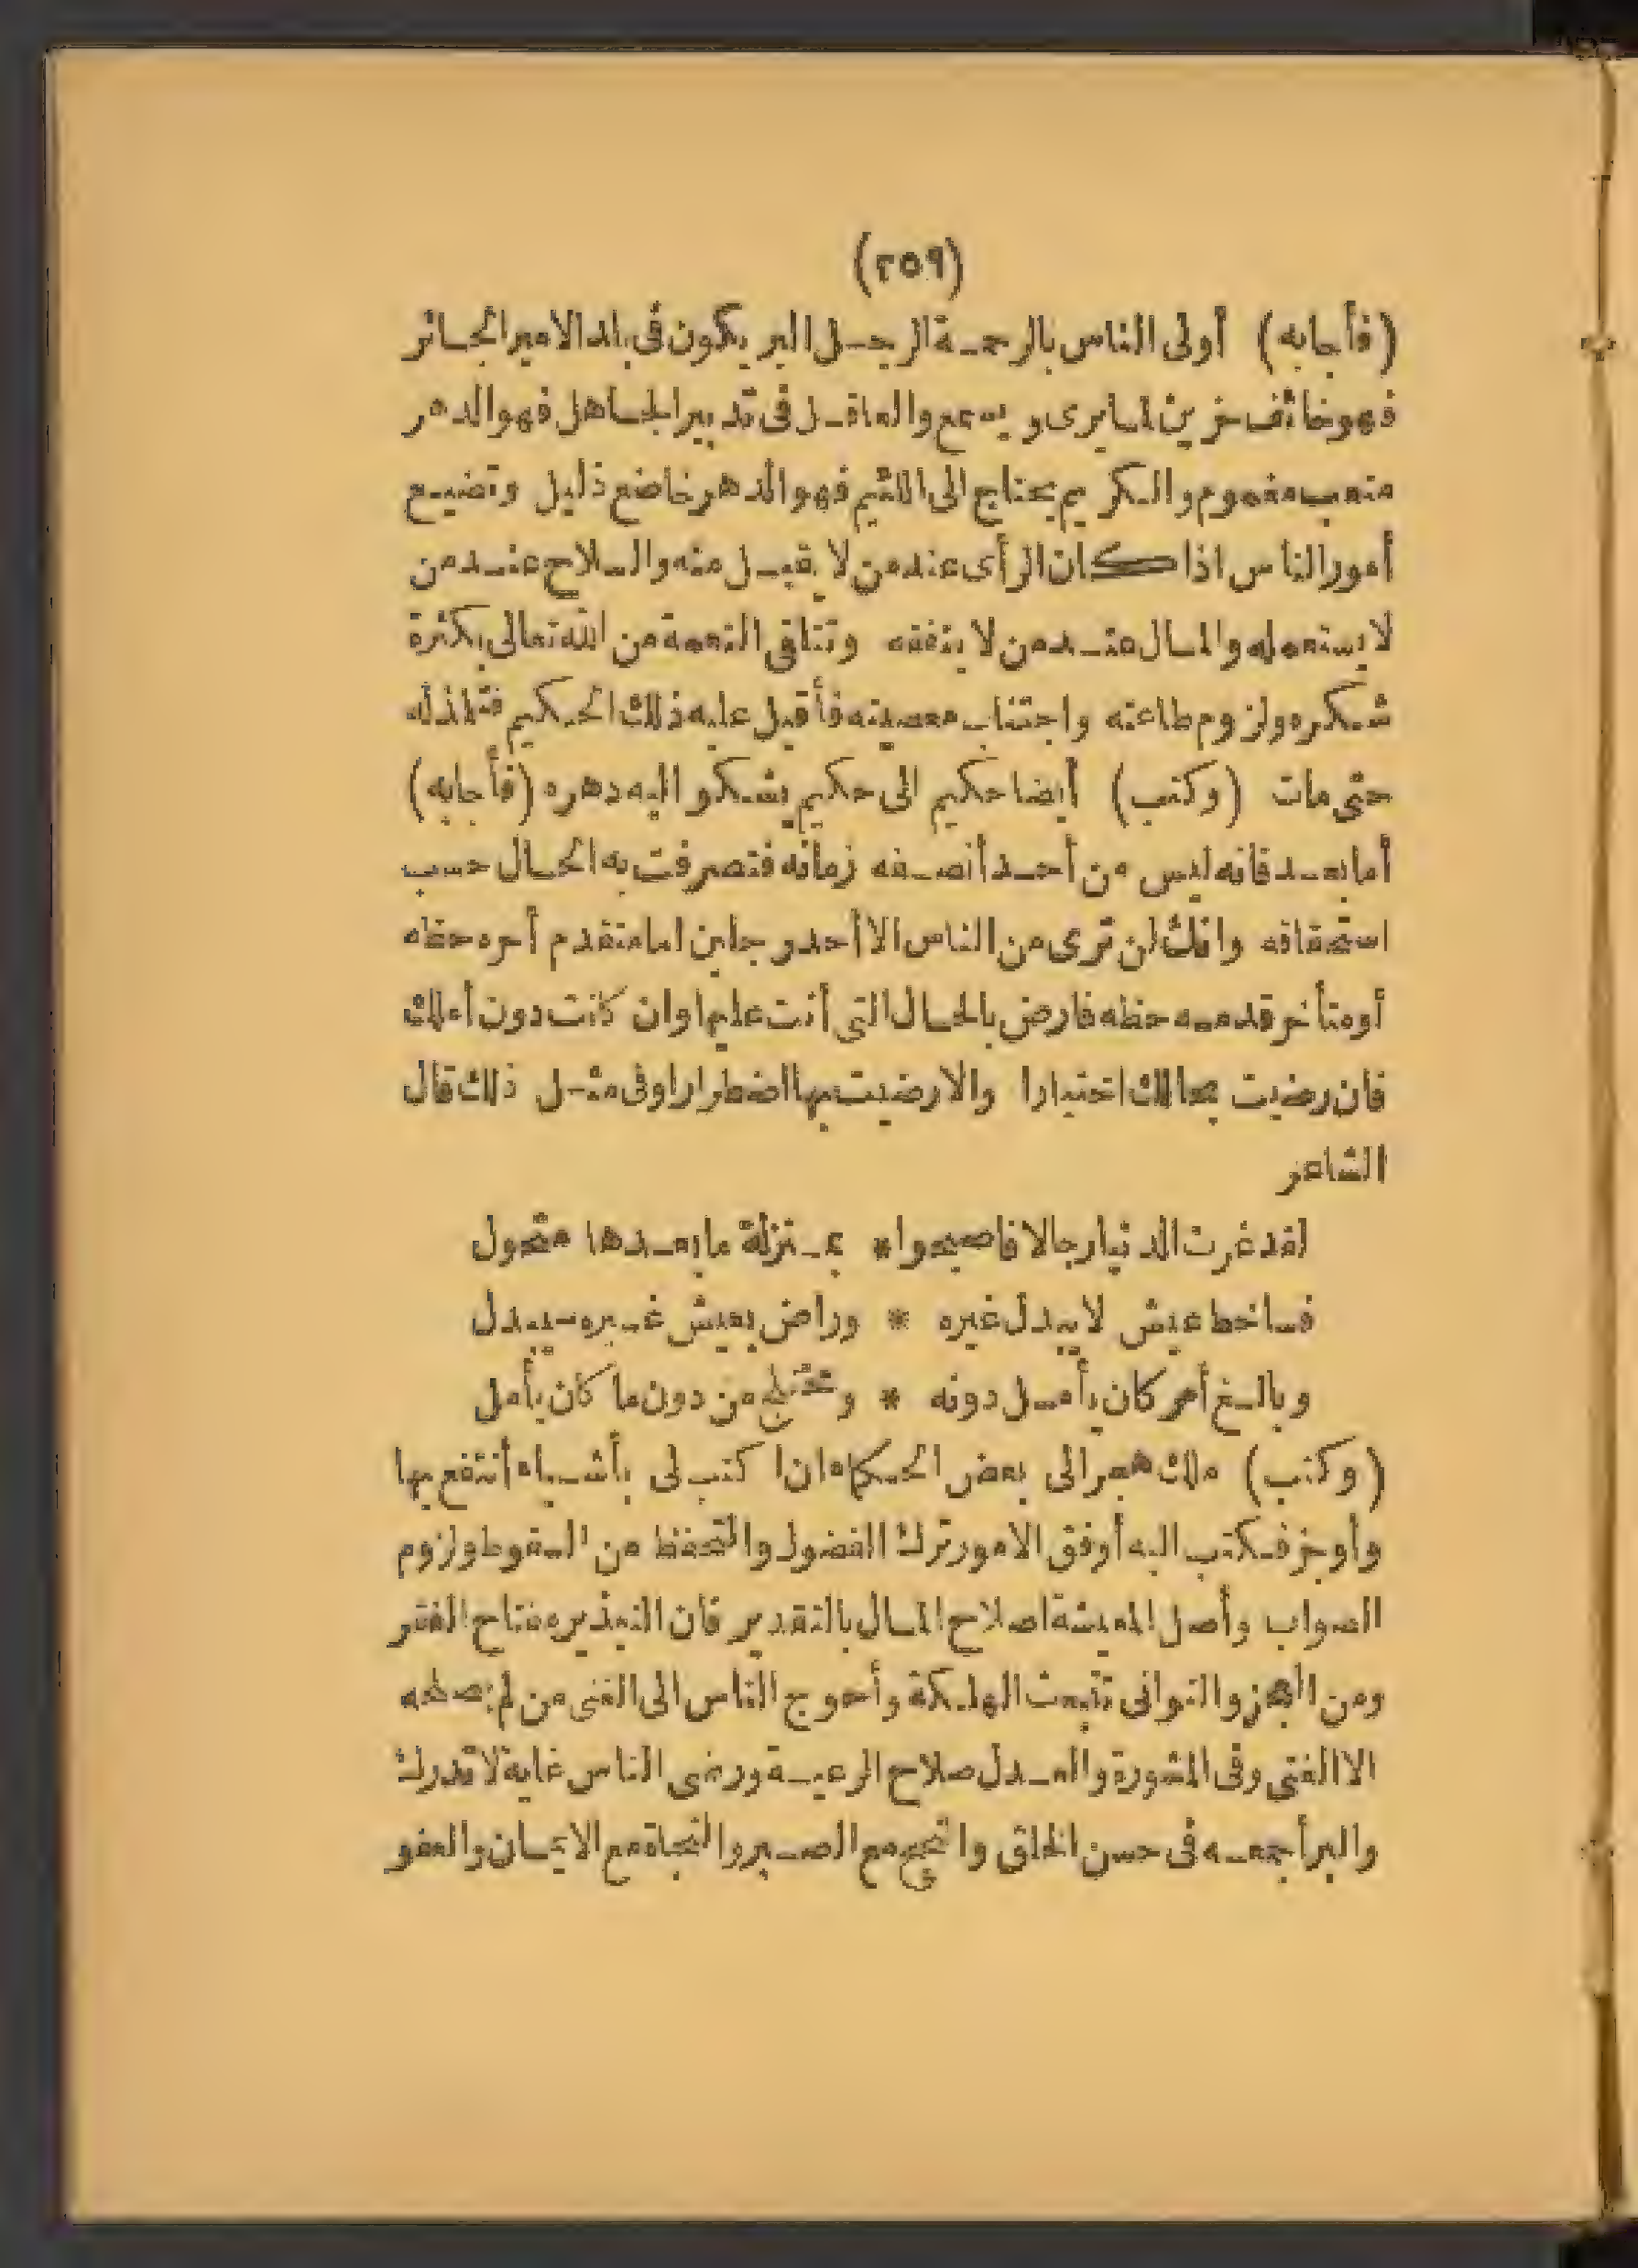 (٢٥٩)
(فأجابه) أولى الناس بالرحمة الرجل البر يكون فى بلد الامير الجائر
فهو خائف حزين لما يرى ويسمع والعاقل فى تدبير الجاهل فهو الدهر
متعب مغموم والكريم يحتاج الى اللئيم فهو الدهر خاضع ذليل وتضيع
أمور الناس اذا كان الرأى عند من لا يقبل منه والسلاح عند من
لا يستعمله والمال عند من لا ينفقه وتتلقى النعمة من الله تعالى بكثرة
شكره ولزوم طاعته واجتناب معصيته فأقبل عليه ذلك الحكيم فتلمذ له
حتى مات (وكتب) أيضا حكيم الى حكيم يشكو اليه دهره (فأجابه)
أما بعد فانه ليس من أحد أنصفه زمانه فتصرفت به الحال حسب
استحقاقه وانك لن ترى من الناس الا أحد رجلين اما متقدم أخره حظه
أو متأخر قدمه حظه فارض بالحال التى أنت عليها وان كانت دون أملك
فان رضيت بحالك اختيارا والا رضيت بها اضطرارا وفى مثل ذلك قال
الشاعر
لقد غرت الدنيا رجالا فاصبحوا * بمنزلة ما بعدها متحول
فساخط عيش لا يبدل غيره * وراض بعيش غيره سيبدل
وبالغ أمر كان يأمل دونه * ومختلج من دون ما كان يأمل
(وكتب) ملك هجر الى بعض الحكماء ان اكتب لى بأشياء أنتفع بها
وأوجز فكتب اليه أوفق الامور ترك الفضول والتحفظ من السقوط ولزوم
الصواب وأصل المعيشة اصلاح المال بالتقدير فان التبذير مفتاح الفقر
ومن العجز والتوانى تنبعث الهلكة وأحوج الناس الى الغنى من لم يصلحه
الا الغنى وفى المشورة والعدل صلاح الرعية ورضى الناس غاية لا تدرك
والبر أجمعه فى حسن الخلق والنجح مع الصبر والنجاة مع الايمان والعفو